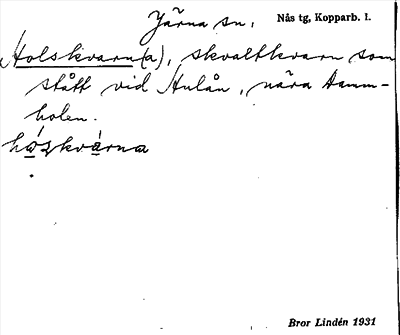 Järna sn. Nås tg, Kopparb. l.
Holskvarn(a), skvaltkvarn som
stått vid Hulån, nära Damm-
holen.
hòskvàrna
Bror Lindén 1931